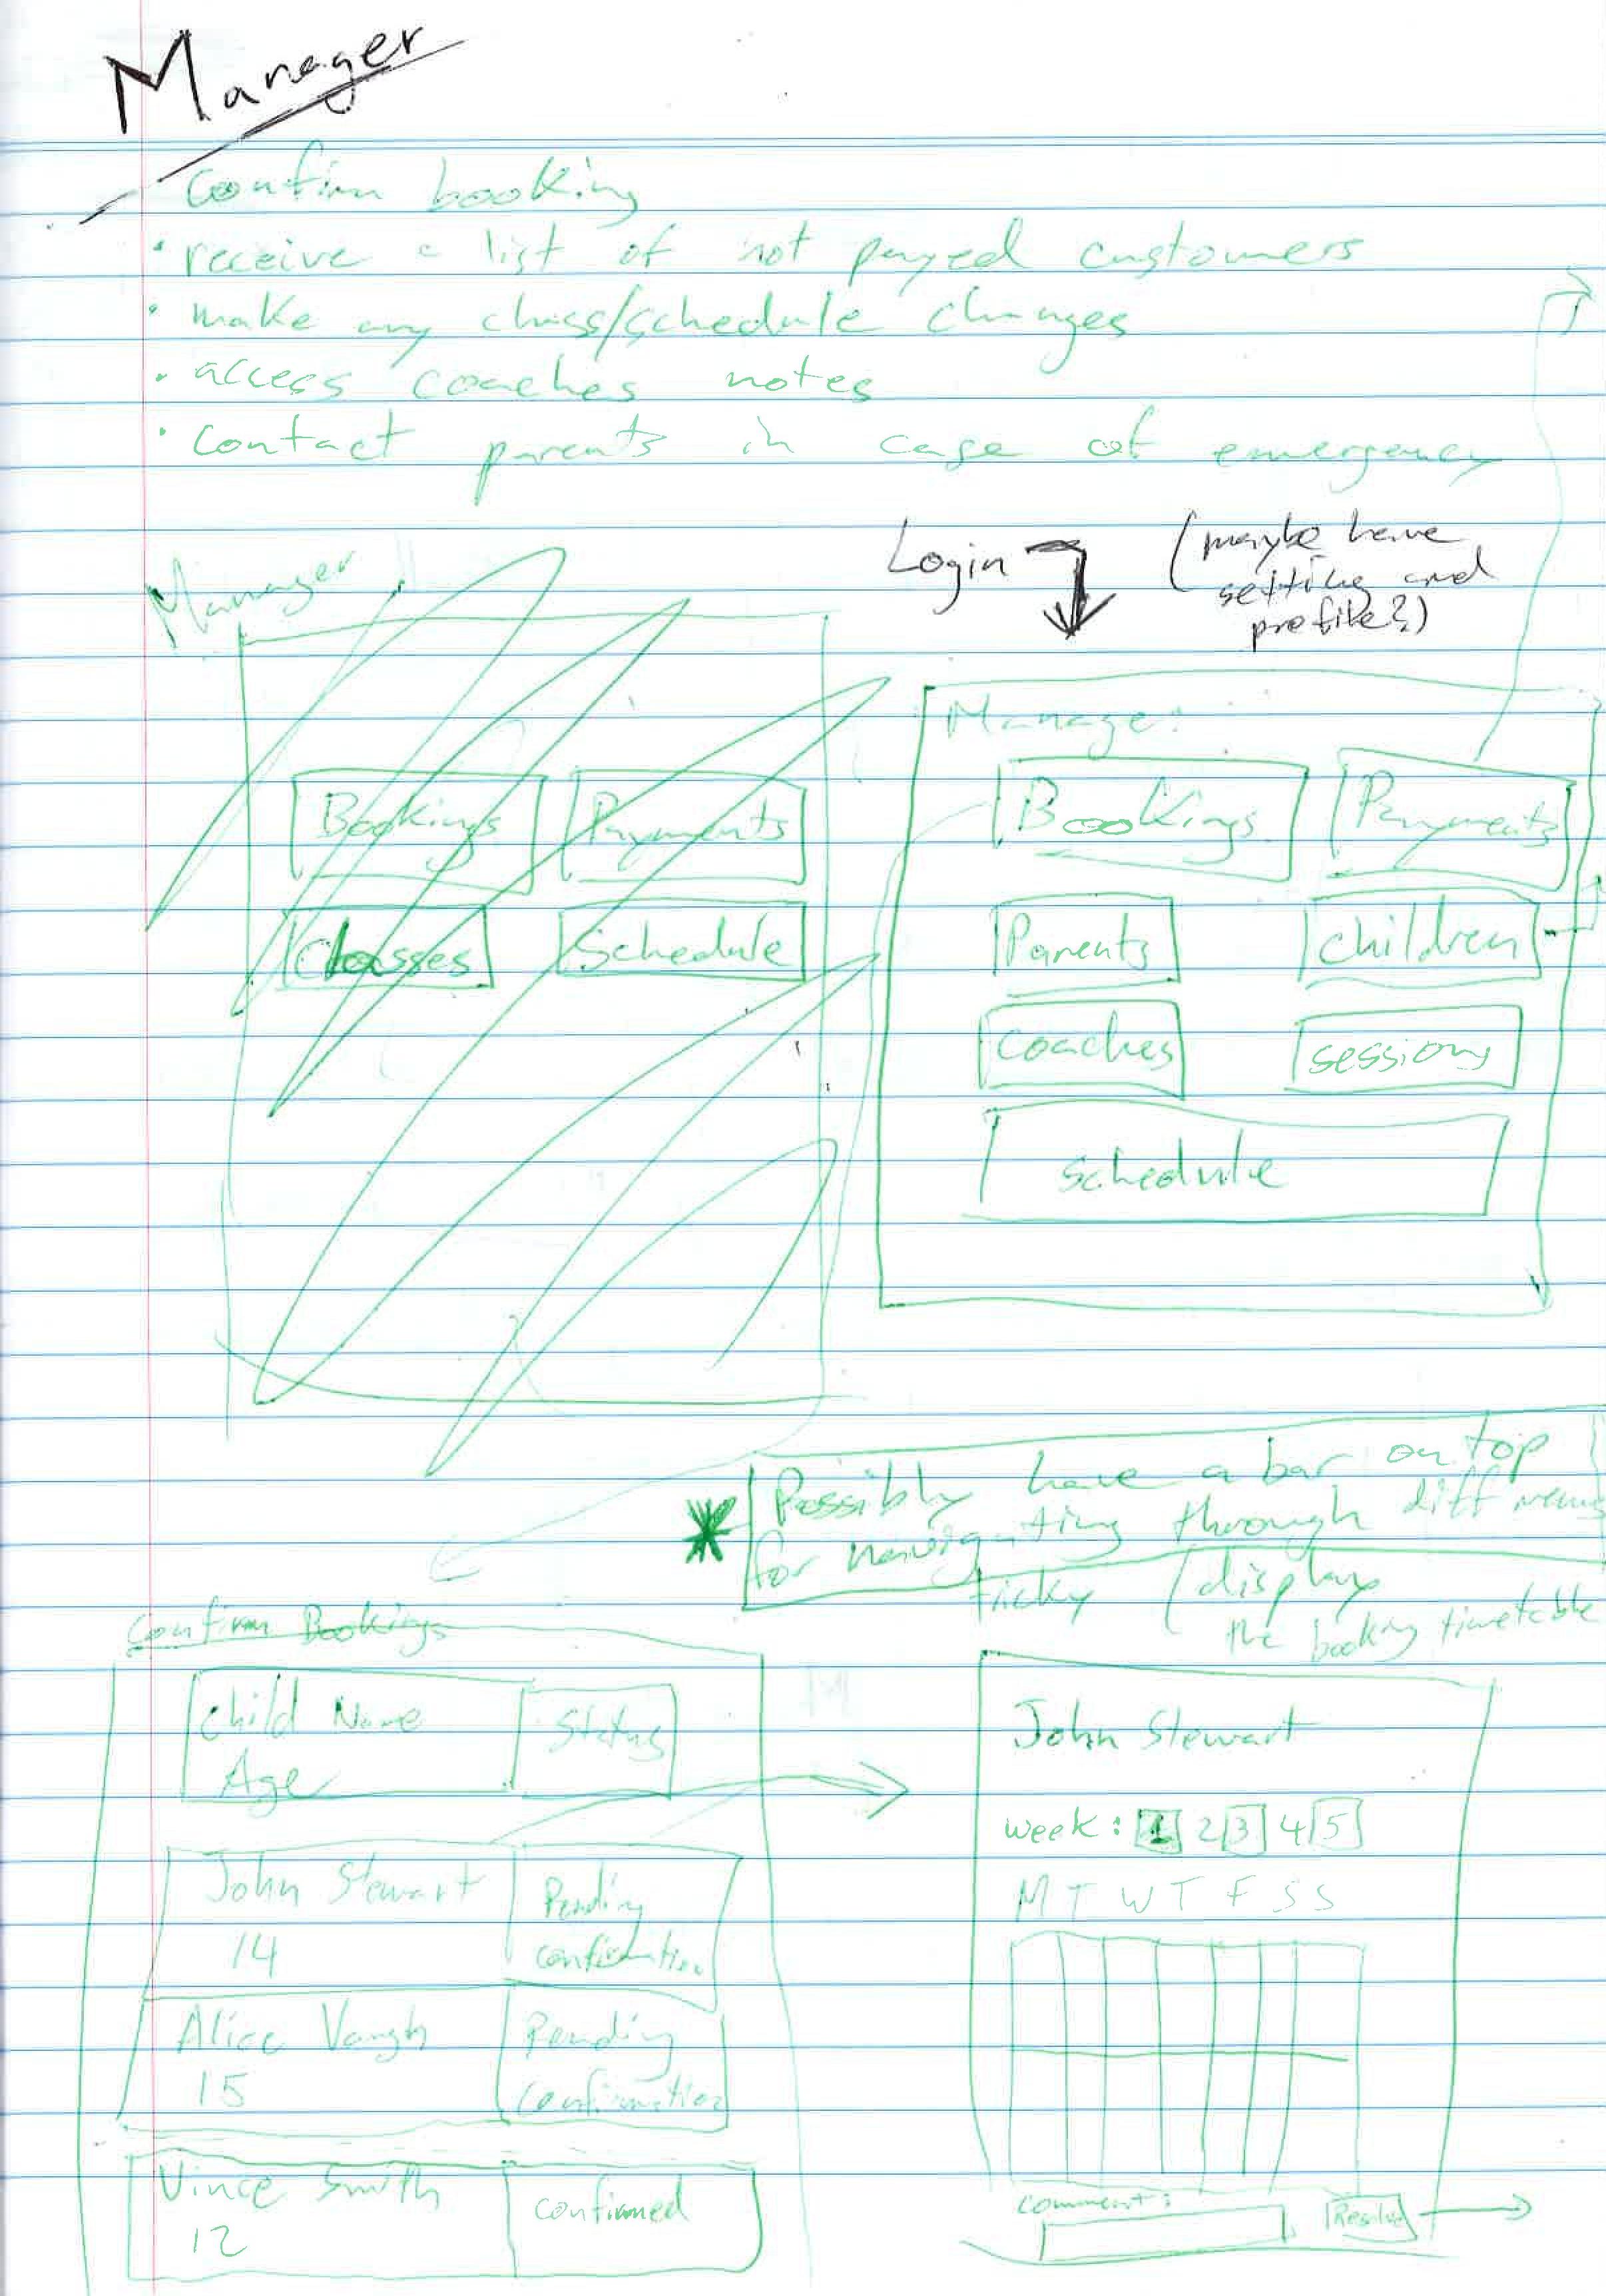 Manager
Confirm booking
• receive a list of not payed customers
• make any class/schedule changes
• access coaches notes
• contact parents in case of emergency
Manager
Bookings Payments
Classes Schedule
Login (maybe have
setting and
profile?)
Manage:
Bookings Payments
Parents Children
Coaches sessions
Schedule
* Possibly have a bar on top
for navigating through diff menus
ticky (display
the booking timetable
Confirm Bookings
Child Name Status
Age
John Stewart Pending
14 confirmation
Alice Vaugh Pending
15 Confirmation
Vince Smith Confirmed
12
John Stewart
week: 1 2 3 4 5
M T W T F S S
Comment:
Resolve